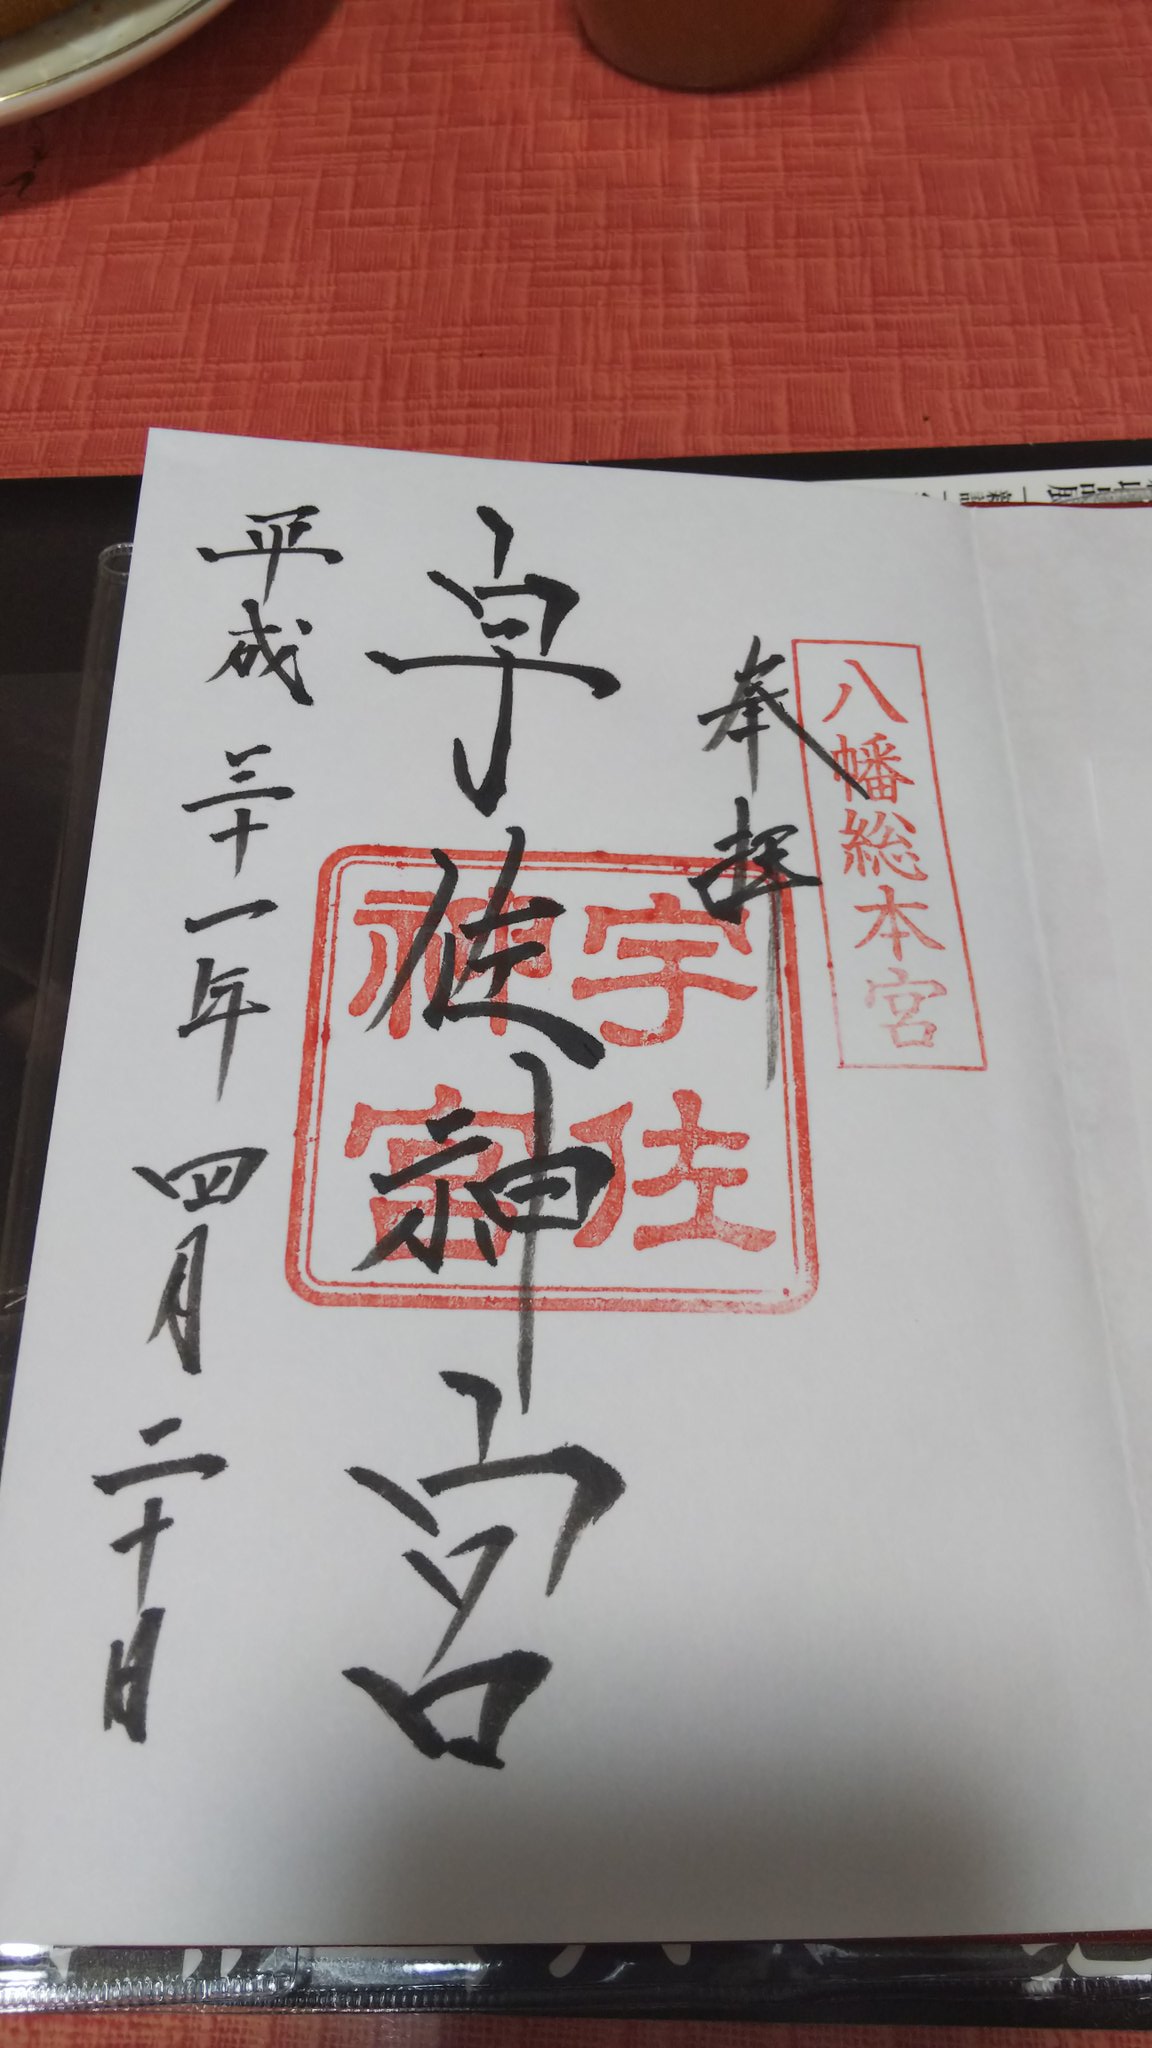 八幡総本宮
奉拝
宇佐
神宮
宇佐神宮
平成三十一年四月二十日